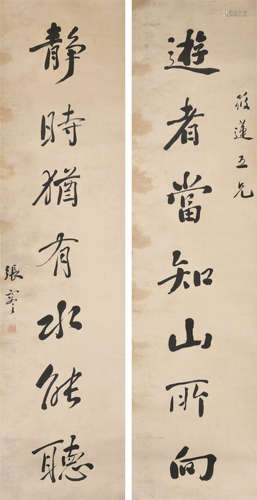 筱蓮五兄
遊者當知山所向
靜時猶有水能聽
張謇